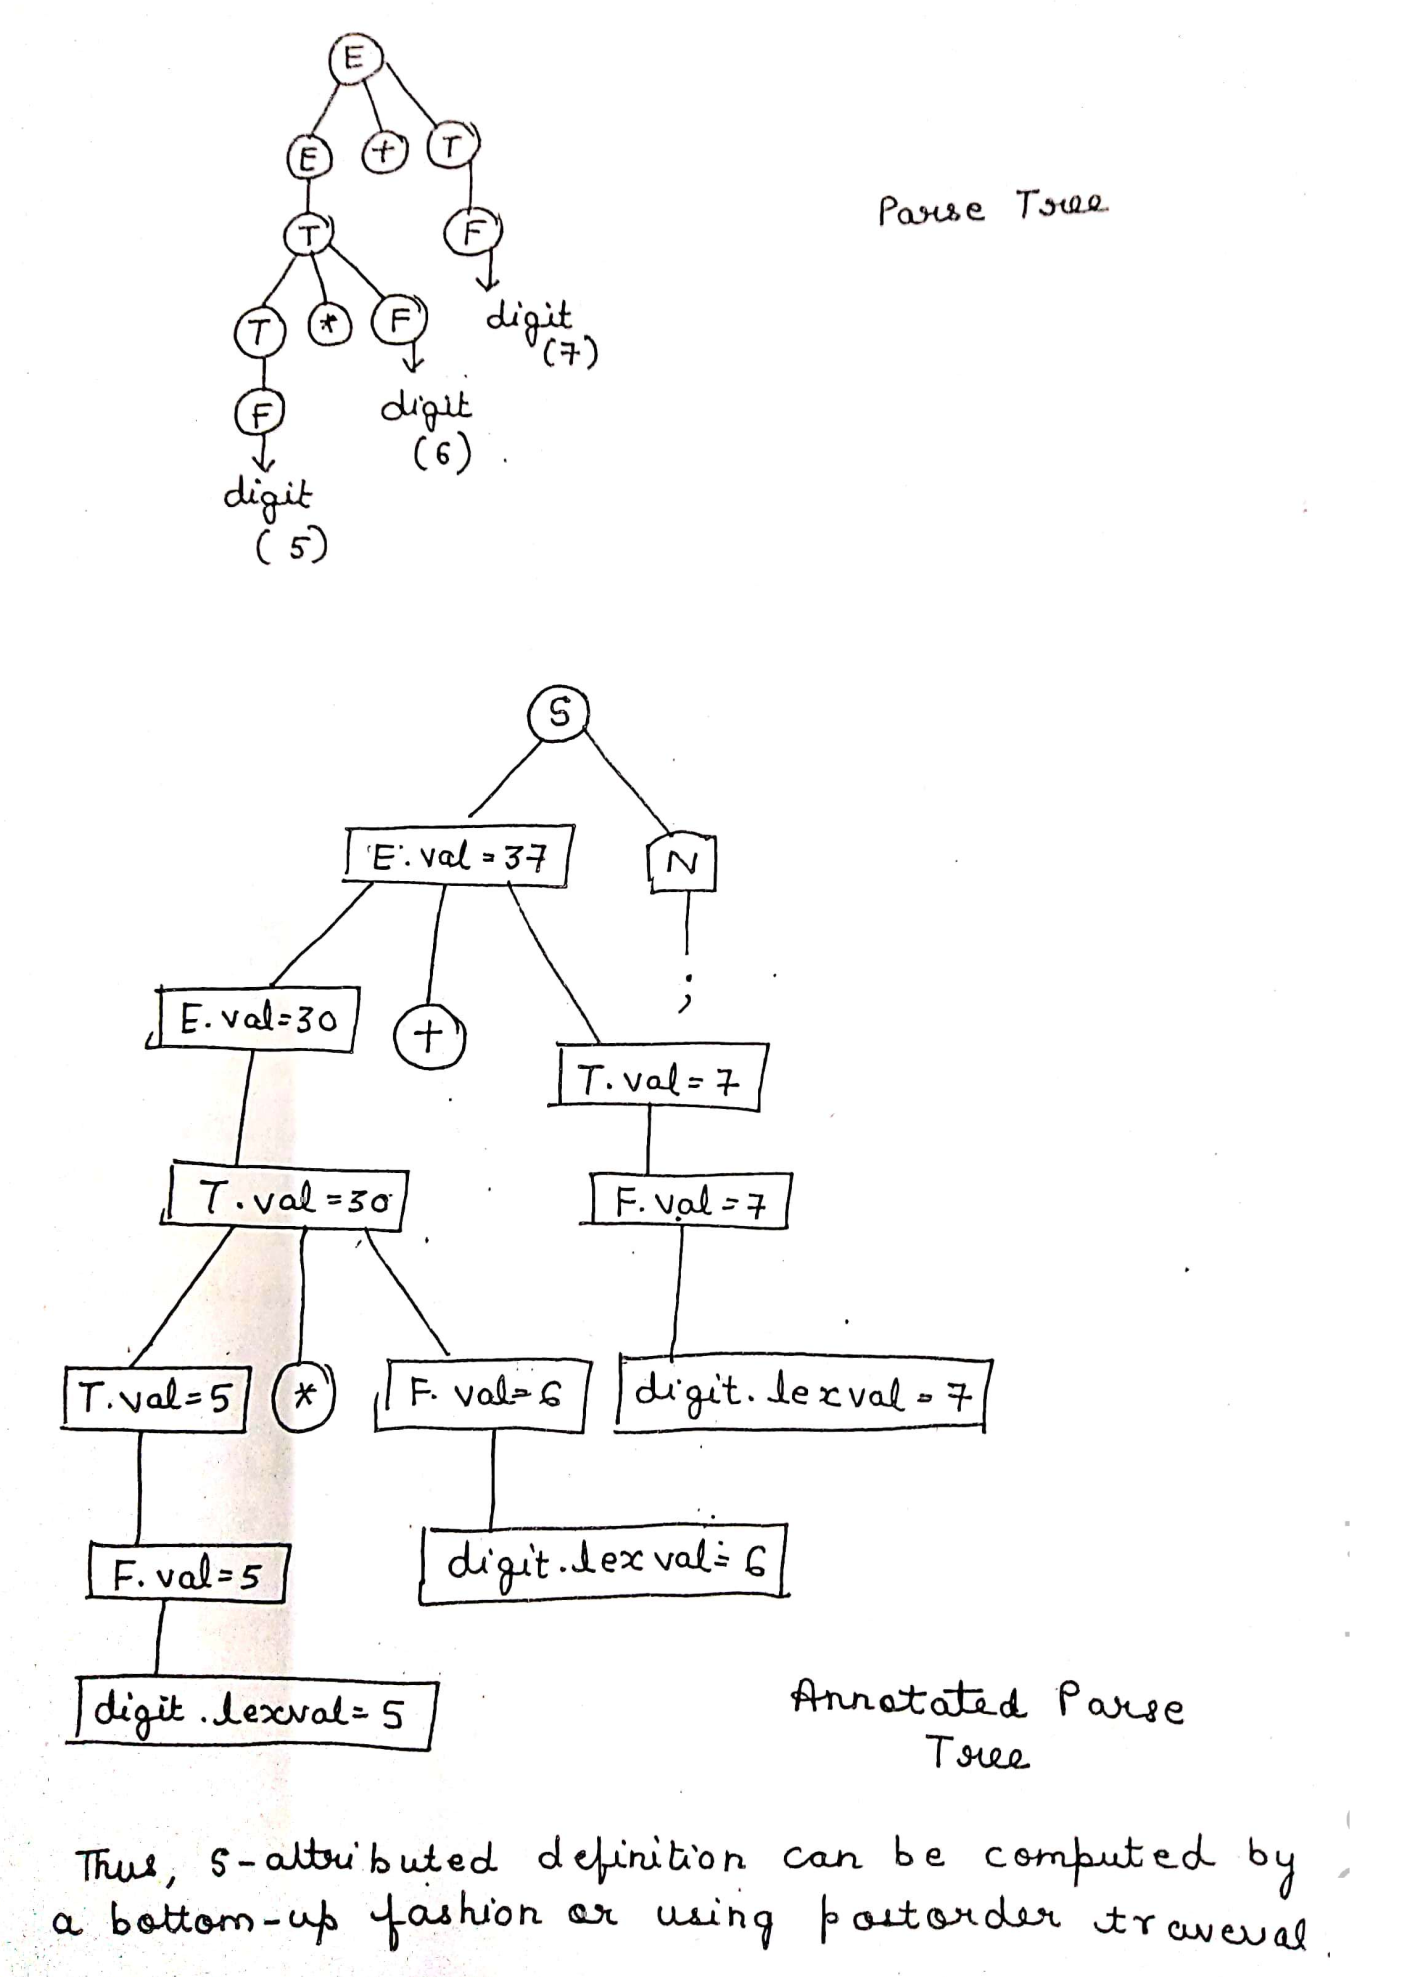 E
E + T
Parse Tree
T F
T * F digit
(7)
F digit
(6)
digit
(5)
S
E.val = 37 N
E.val=30 + ;
T.val = 7
T.val = 30 F.val = 7
T.val=5 * F.val=6 digit.lexval = 7
F.val=5 digit.lexval = 6
digit.lexval= 5
Annotated Parse
Tree
Thus, S-attributed definition can be computed by
a bottom-up fashion or using postorder traversal.